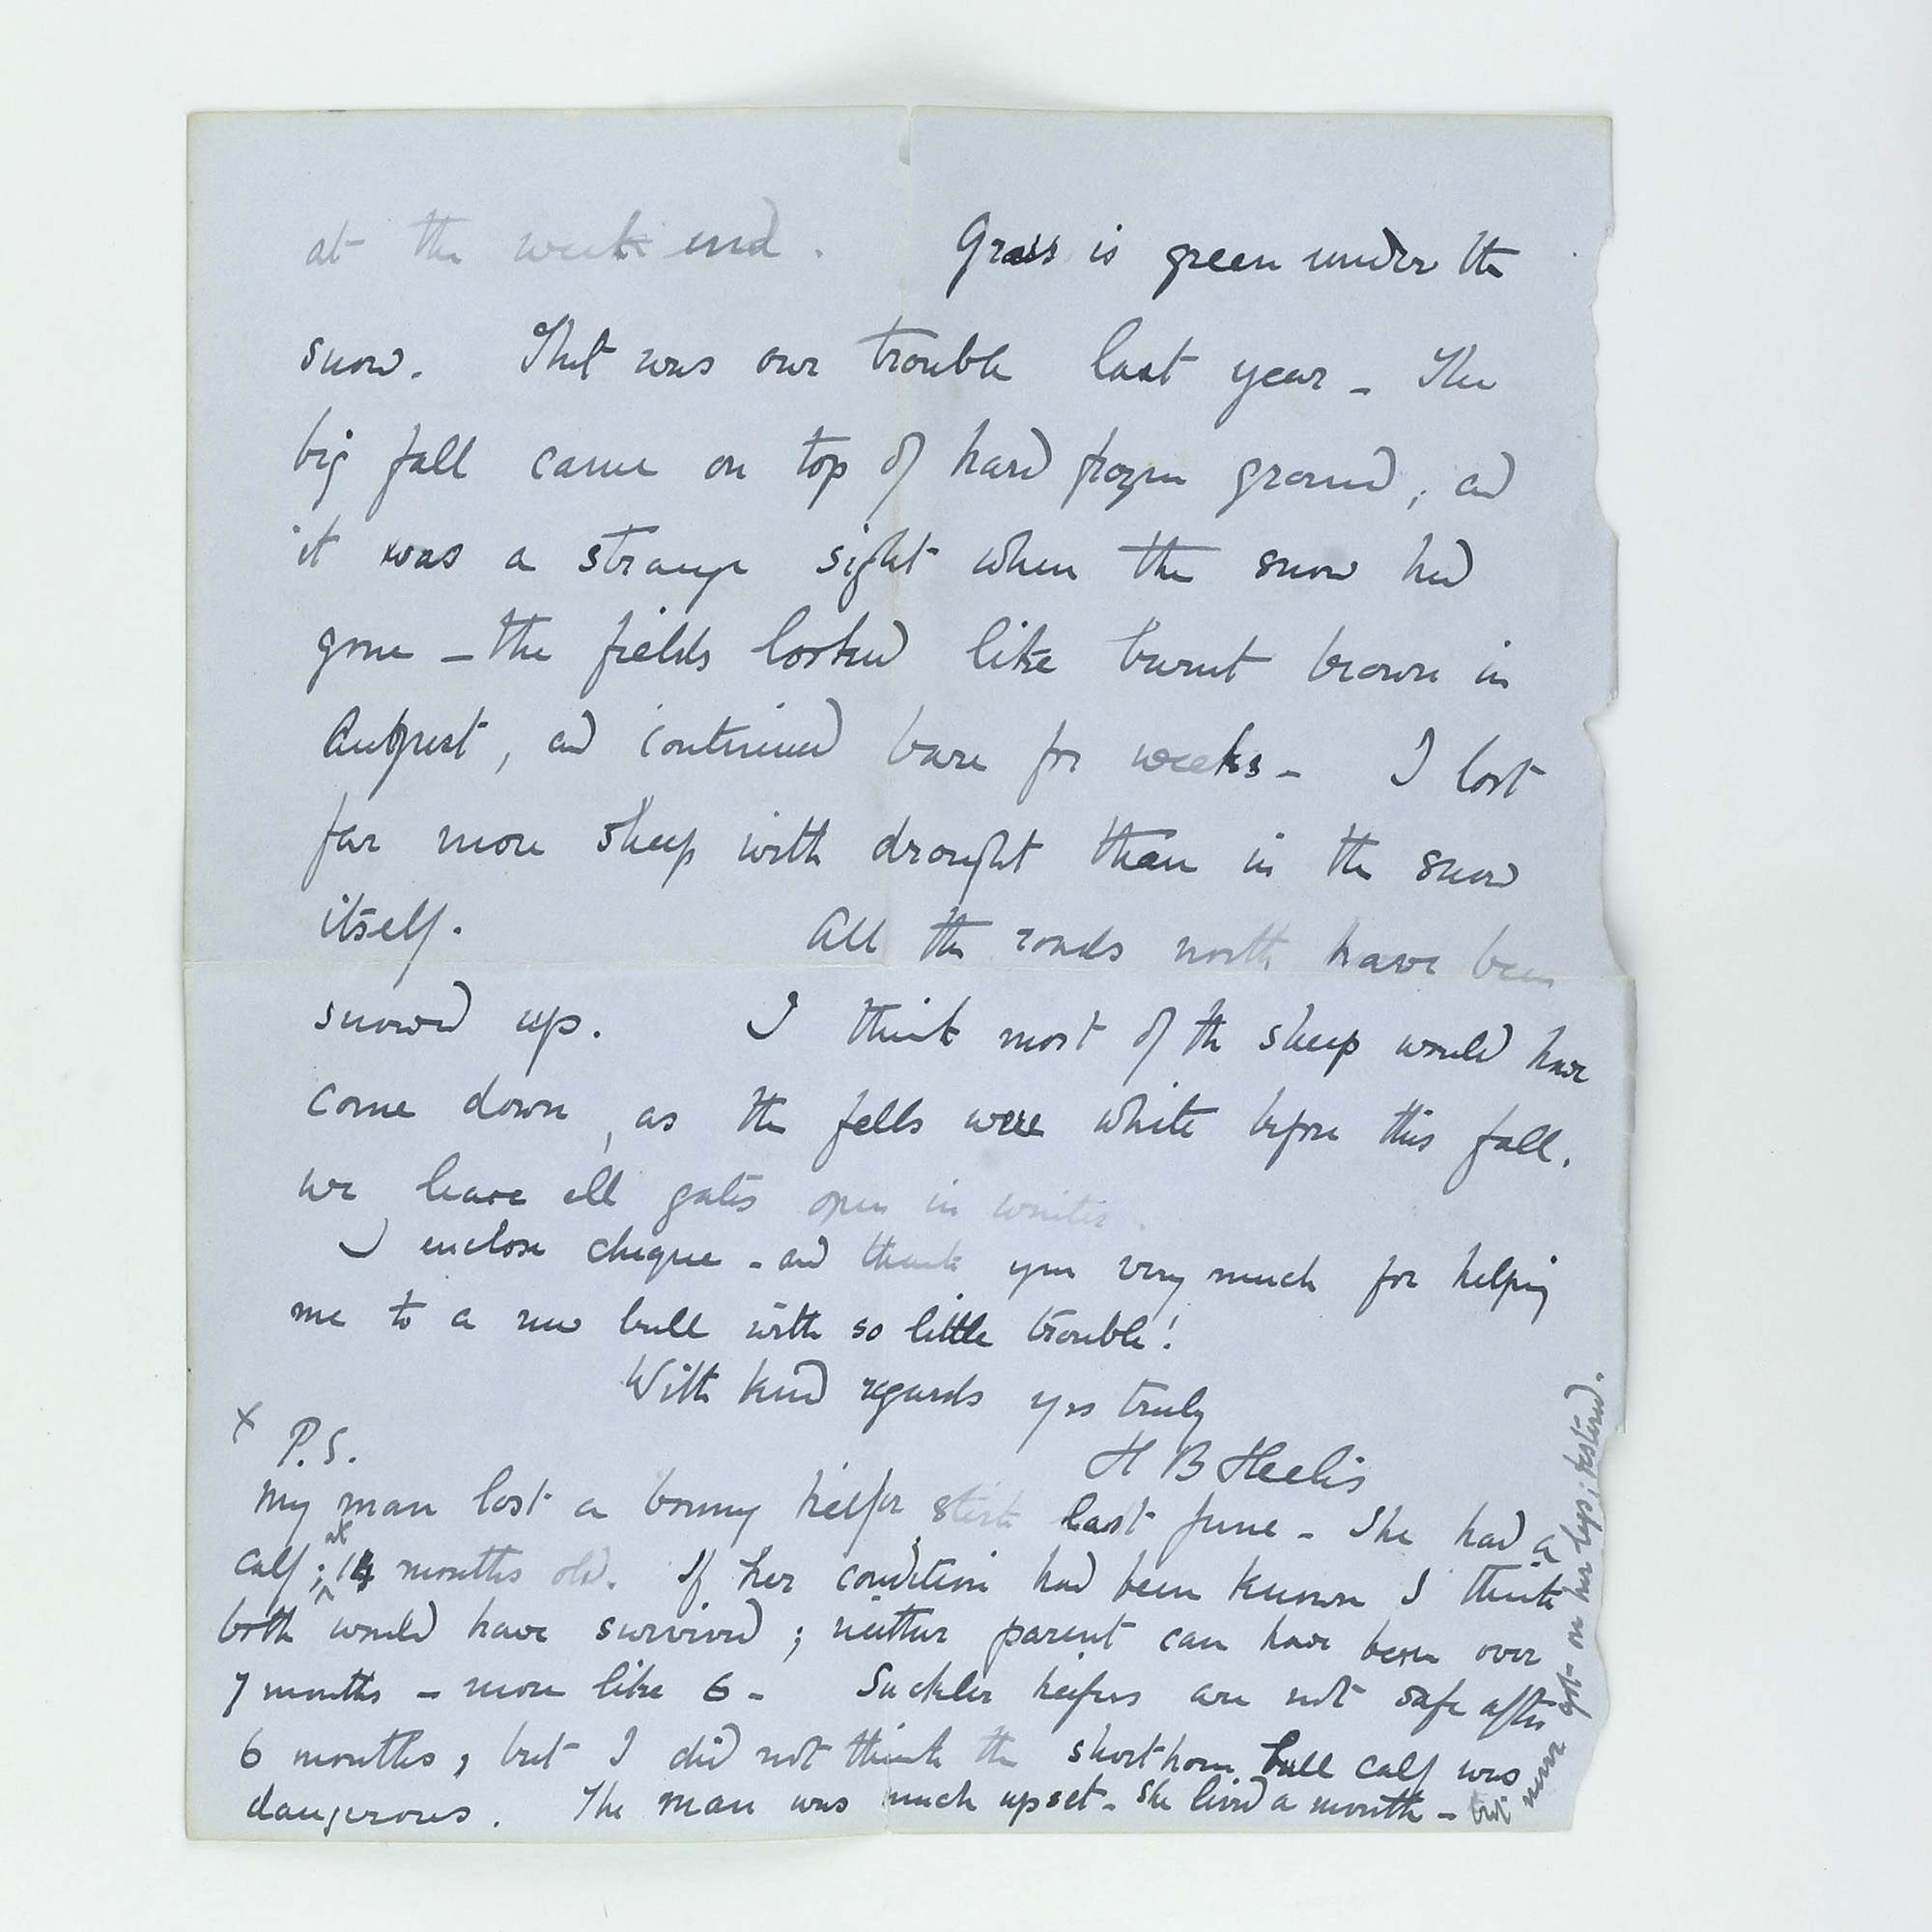 at the week end. Grass is green under the
snow. That was our trouble last year - The
big fall came on top of hard frozen ground, and
it was a strange sight when the snow had
gone - the fields looked like burnt brown in
August, and continued bare for weeks - I lost
far more sheep with drought than in the snow
itself. All the roads north have been
snowed up. I think most of the sheep would have
come down, as the fells were white before this fall.
we leave all gates open in winter.
I enclose cheque - and thank you very much for helping
me to a new bull with so little trouble!
With kind regards yrs truly
H B Heelis
x P.S.
My man lost a bonny heifer stirk last June - She had a
calf; at 14 months old. If her condition had been known I think
both would have survived; neither parent can have been over
7 months - more like 6 - Suckler heifers are not safe after
6 months, but I did not think the shorthorn bull calf was
dangerous. The man was much upset - she lived a month - but
never got on her legs; festered.